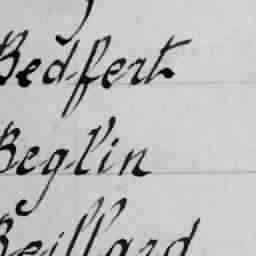 Bedfert
Beglin
Beillard